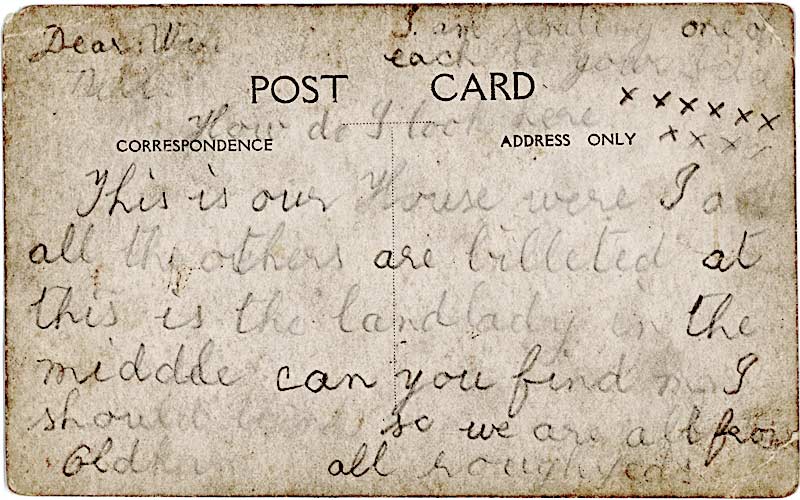 Dear Wife I am sending one of
each to your
POST CARD
How do I look here x x x x x x
CORRESPONDENCE ADDRESS ONLY x x x x
This is our House were I a
all the others are billeted at
this is the landlady in the
middle can you find me I
should so we are all from
Oldham all roughyeds